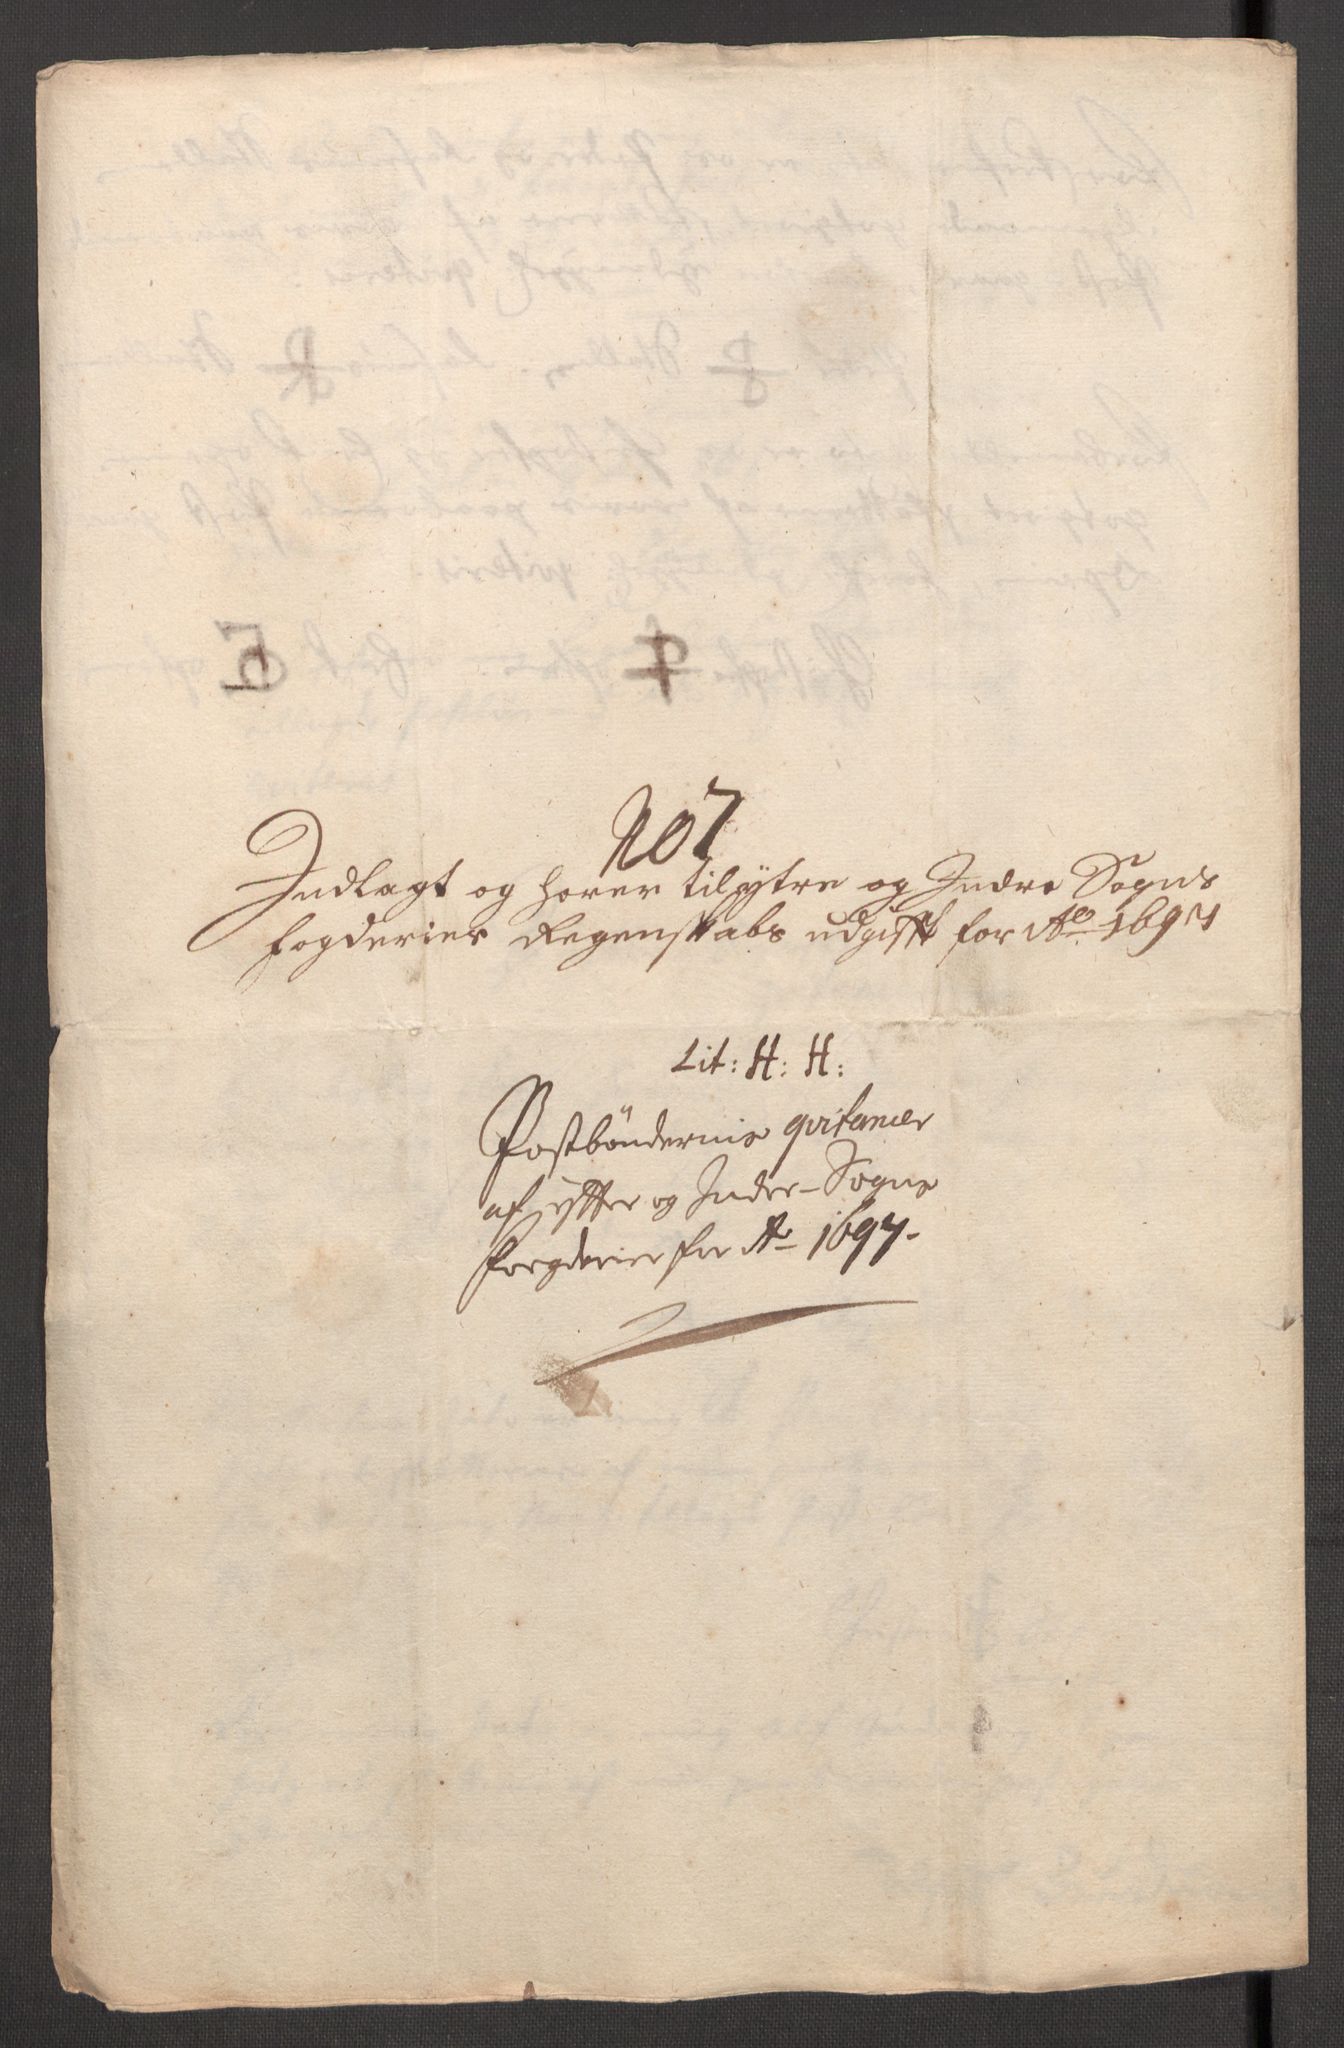 No 7
Indlagt og hører til ÿtre og Indre Sogns
fogderier Regenskabs udgifft for Ao 1697
Lit: H: H:
Postbøndernis qvitancer
af ÿtter og Inder-Sogns
forgderier for Ao 1697.